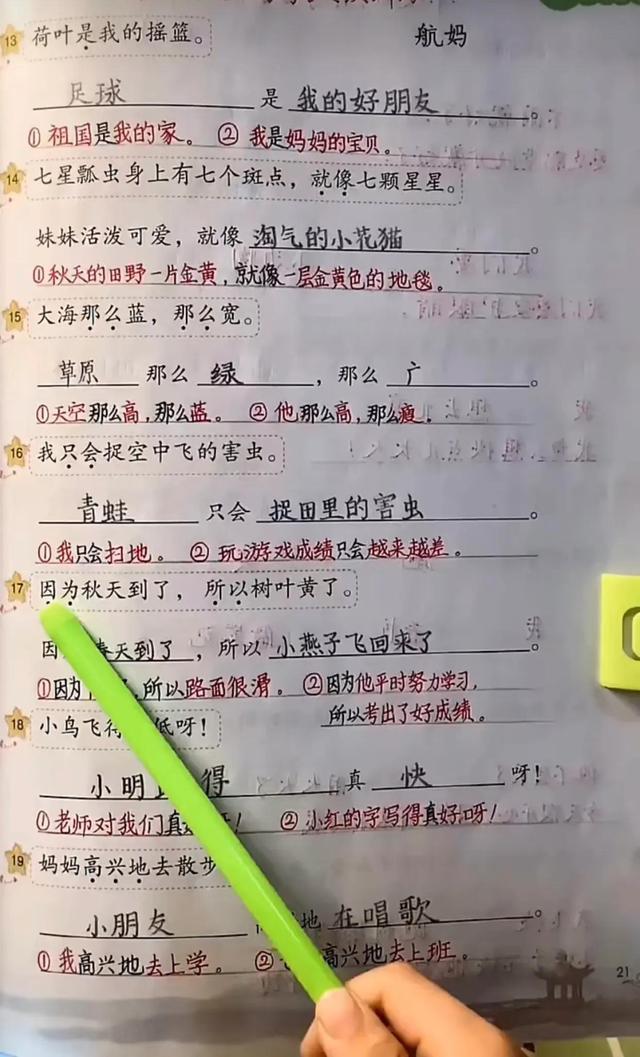 13 荷叶是我的摇篮。
航妈
足球 是 我的好朋友。
①祖国是我的家。 ②我是妈妈的宝贝。
14 七星瓢虫身上有七个斑点，就像七颗星星。
妹妹活泼可爱，就像淘气的小花猫。
①秋天的田野一片金黄，就像一层金黄色的地毯。
15 大海那么蓝，那么宽。
草原 那么 绿，那么 广。
①天空那么高，那么蓝。 ②他那么高，那么瘦。
16 我只会捉空中飞的害虫。
青蛙 只会 捉田里的害虫。
①我只会扫地。 ②玩游戏成绩只会越来越差。
17 因为秋天到了，所以树叶黄了。
因 春天到了，所以 小燕子飞回来了。
①因为 ，所以路面很滑。 ②因为他平时努力学习，
所以考出了好成绩。
18 小鸟飞得 低呀！
小明 得 真 快 呀！
①老师对我们真 呀！ ②小红的字写得真好呀！
19 妈妈高兴地去散步
小朋友 地 在唱歌。
①我高兴地去上学。 ② 高兴地去上班。
21